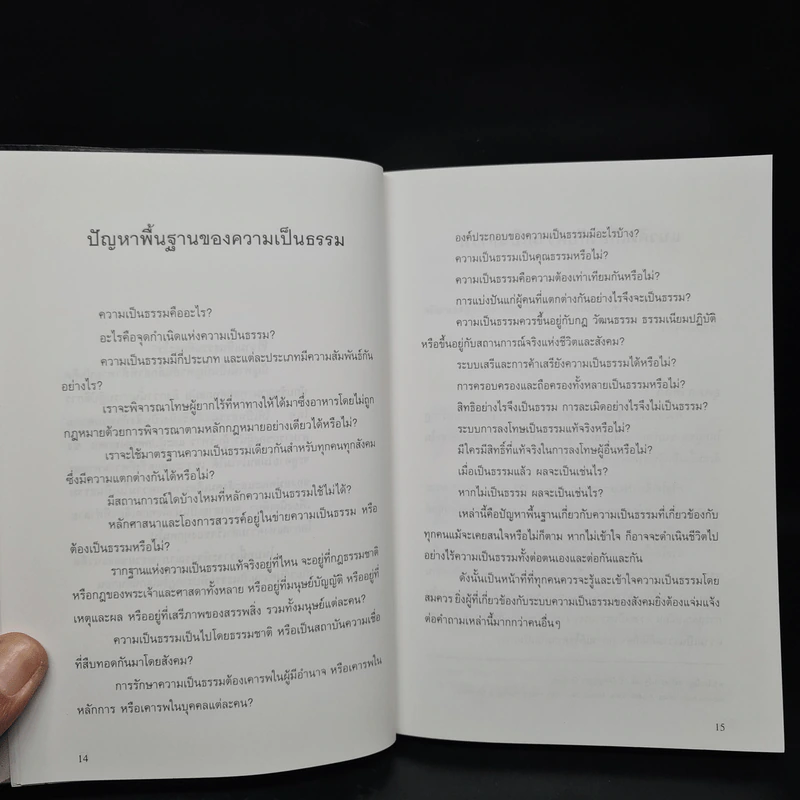 ปัญหาพื้นฐานของความเป็นธรรม
ความเป็นธรรมคืออะไร?
อะไรคือจุดกำเนิดแห่งความเป็นธรรม?
ความเป็นธรรมมีกี่ประเภท และแต่ละประเภทมีความสัมพันธ์กัน
อย่างไร?
เราจะพิจารณาโทษผู้ยากไร้ที่หาทางให้ได้มาซึ่งอาหารโดยไม่ถูก
กฎหมายด้วยการพิจารณาตามหลักกฎหมายอย่างเดียวได้หรือไม่?
เราจะใช้มาตรฐานความเป็นธรรมเดียวกันสำหรับทุกคนทุกสังคม
ซึ่งมีความแตกต่างกันได้หรือไม่?
มีสถานการณ์ใดบ้างไหมที่หลักความเป็นธรรมใช้ไม่ได้?
หลักศาสนาและโองการสวรรค์อยู่ในข่ายความเป็นธรรม หรือ
ต้องเป็นธรรมหรือไม่?
รากฐานแห่งความเป็นธรรมแท้จริงอยู่ที่ไหน จะอยู่ที่กฎธรรมชาติ
หรือกฎของพระเจ้าและศาสดาทั้งหลาย หรืออยู่ที่มนุษย์บัญญัติ หรืออยู่ที่
เหตุและผล หรืออยู่ที่เสรีภาพของสรรพสิ่ง รวมทั้งมนุษย์แต่ละคน?
ความเป็นธรรมเป็นไปโดยธรรมชาติ หรือเป็นสถาบันความเชื่อ
ที่สืบทอดกันมาโดยสังคม?
การรักษาความเป็นธรรมต้องเคารพในผู้มีอำนาจ หรือเคารพใน
หลักการ หรือเคารพในบุคคลแต่ละคน?
14
องค์ประกอบของความเป็นธรรมมีอะไรบ้าง?
ความเป็นธรรมเป็นคุณธรรมหรือไม่?
ความเป็นธรรมคือความต้องเท่าเทียมกันหรือไม่?
การแบ่งปันแก่ผู้คนที่แตกต่างกันอย่างไรจึงจะเป็นธรรม?
ความเป็นธรรมควรขึ้นอยู่กับกฎ วัฒนธรรม ธรรมเนียมปฏิบัติ
หรือขึ้นอยู่กับสถานการณ์จริงแห่งชีวิตและสังคม?
ระบบเสรีและการค้าเสรียังความเป็นธรรมได้หรือไม่?
การครอบครองและถือครองทั้งหลายเป็นธรรมหรือไม่?
สิทธิอย่างไรจึงเป็นธรรม การละเมิดอย่างไรจึงไม่เป็นธรรม?
ระบบการลงโทษเป็นธรรมแท้จริงหรือไม่?
มีใครมีสิทธิ์ที่แท้จริงในการลงโทษผู้อื่นหรือไม่?
เมื่อเป็นธรรมแล้ว ผลจะเป็นเช่นไร?
หากไม่เป็นธรรม ผลจะเป็นเช่นไร?
เหล่านี้คือปัญหาพื้นฐานเกี่ยวกับความเป็นธรรมที่เกี่ยวข้องกับ
ทุกคนแม้จะเคยสนใจหรือไม่ก็ตาม หากไม่เข้าใจ ก็อาจจะดำเนินชีวิตไป
อย่างไร้ความเป็นธรรมทั้งต่อตนเองและต่อกันและกัน
ดังนั้นเป็นหน้าที่ที่ทุกคนควรจะรู้และเข้าใจความเป็นธรรมโดย
สมควร ยิ่งผู้ที่เกี่ยวข้องกับระบบความเป็นธรรมของสังคมยิ่งต้องแจ่มแจ้ง
ต่อคำถามเหล่านี้มากกว่าคนอื่นๆ
15